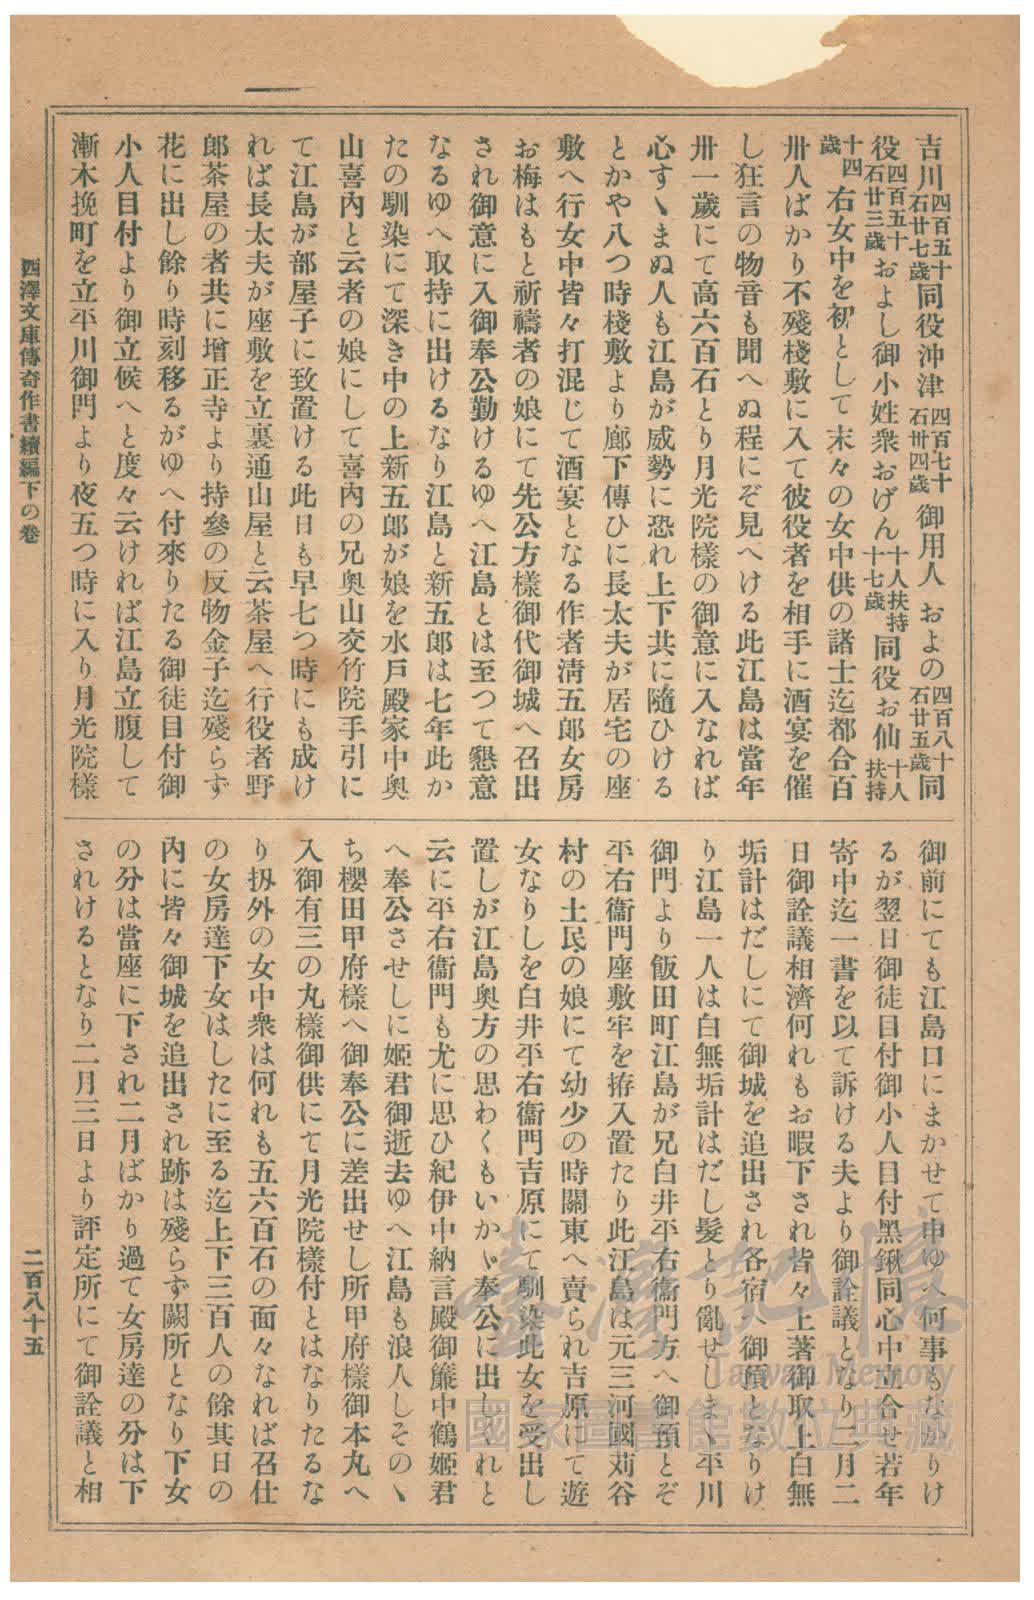 吉川四百五十石廿七歲同役沖津四百七十石卅四歲御用人およの四百八十石廿五歲同
役四百五十石廿三歲およし御小姓衆おげん十人扶持十七歲同役お仙十人扶持
十四歲右女中を初として末々の女中供の諸士迄都合百
卅人ばかり不殘棧敷に入て彼役者を相手に酒宴を催
し狂言の物音も聞へぬ程にぞ見へける此江島は當年
卅一歲にて高六百石とり月光院樣の御意に入なれば
心すゝまぬ人も江島が威勢に恐れ上下共に隨ひける
とかや八つ時棧敷より廊下傳ひに長太夫が居宅の座
敷へ行女中皆々打混じて酒宴となる作者淸五郎女房
お梅はもと祈禱者の娘にて先公方樣御代御城へ召出
され御意に入御奉公勤けるゆへ江島とは至つて懇意
なるゆへ取持に出けるなり江島と新五郎は七年此か
たの馴染にて深き中の上新五郎が娘を水戶殿家中奧
山喜內と云者の娘にして喜內の兄奧山交竹院手引に
て江島が部屋子に致置ける此日も早七つ時にも成け
れば長太夫が座敷を立裏通山屋と云茶屋へ行役者野
郎茶屋の者共に增正寺より持參の反物金子迄殘らず
花に出し餘り時刻移るがゆへ付來りたる御徒目付御
小人目付より御立候へと度々云ければ江島立腹して
漸木挽町を立平川御門より夜五つ時に入り月光院樣
御前にても江島口にまかせて申ゆへ何事もなかりけ
るが翌日御徒目付御小人目付黑鍬同心中立合せ若年
寄中迄一書を以て訴ける夫より御詮議となり二月二
日御詮議相濟何れもお暇下され皆々上著御取上白無
垢計はだしにて御城を追出され各宿へ御預となりけ
り江島一人は白無垢計はだし髮とり亂せしまゝ平川
御門より飯田町江島が兄白井平右衞門方へ御預とぞ
平右衞門座敷牢を拵入置たり此江島は元三河國苅谷
村の土民の娘にて幼少の時關東へ賣られ吉原にて遊
女なりしを白井平右衞門吉原にて馴染此女を受出し
置しが江島奧方の思わくもいかゞ奉公に出しくれと
云に平右衞門も尤に思ひ紀伊中納言殿御簾中鶴姬君
へ奉公させしに姬君御逝去ゆへ江島も浪人しそのゝ
ち櫻田甲府樣へ御奉公に差出せし所甲府樣御本丸へ
入御有三の丸樣御供にて月光院樣付とはなりたるな
り扨外の女中衆は何れも五六百石の面々なれば召仕
の女房達下女はしたに至る迄上下三百人の餘其日の
內に皆々御城を追出され跡は殘らず闕所となり下女
の分は當座に下され二月ばかり過て女房達の分は下
されけるとなり二月三日より評定所にて御詮議と相
西澤文庫傳奇作書續編下の卷
二百八十五
臺灣記憶
Taiwan Memory
國家圖書館數位典藏